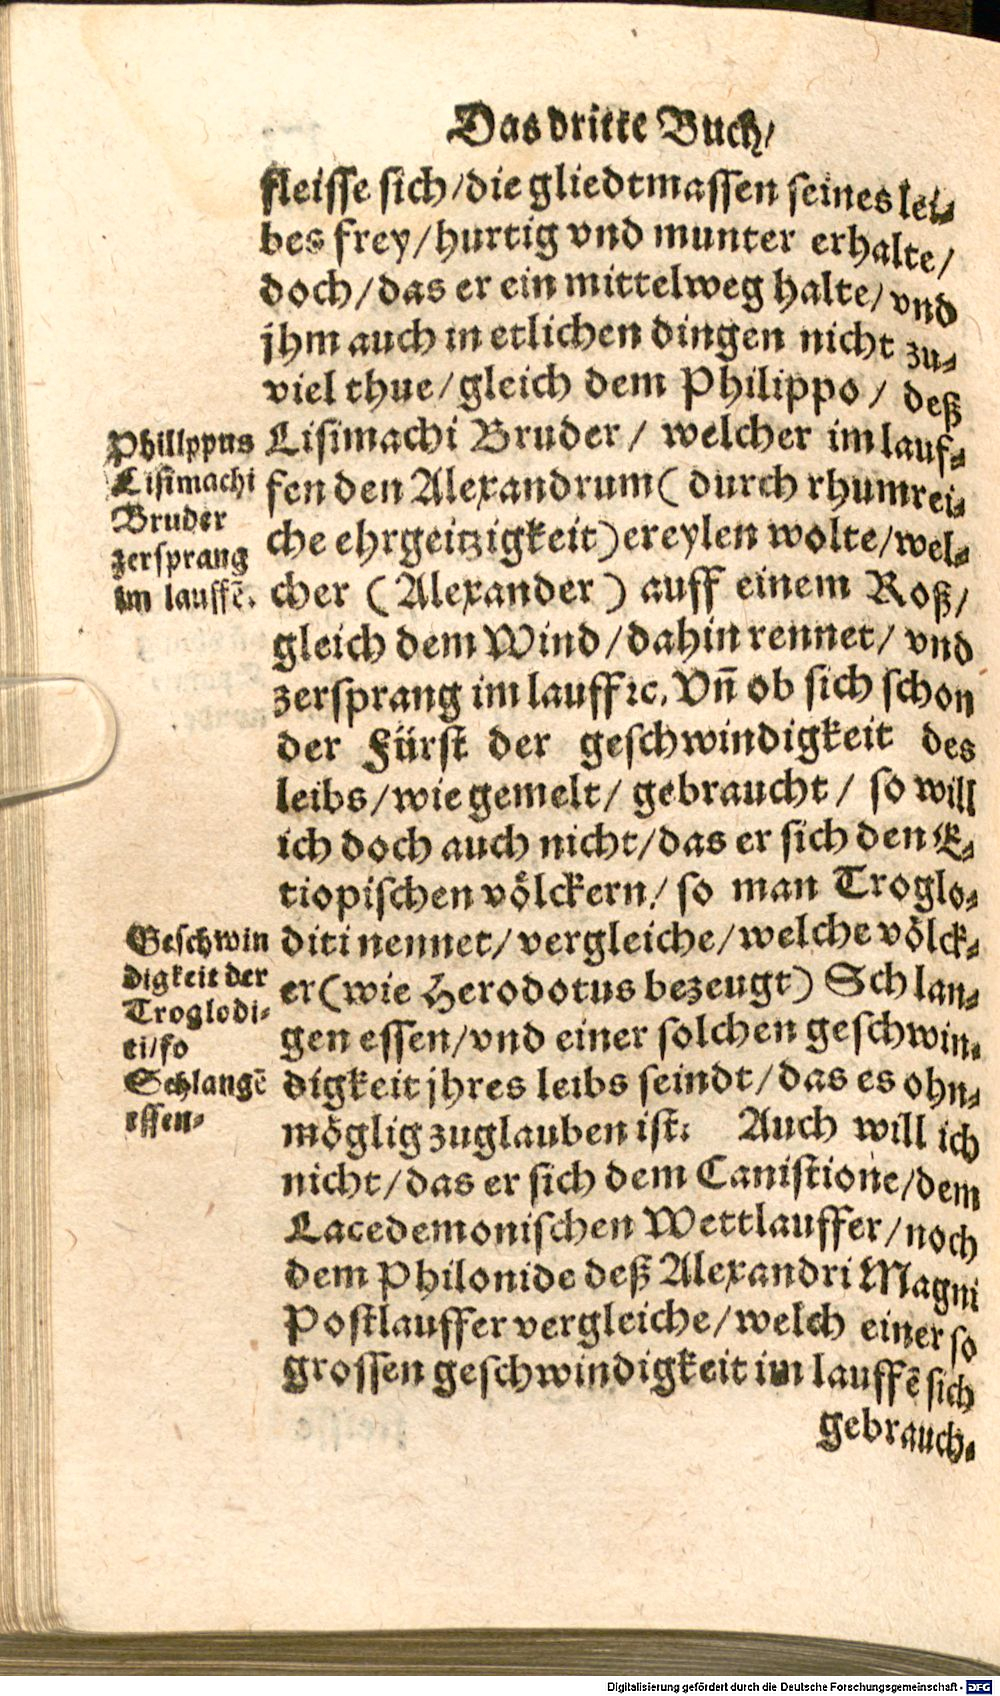 Das dritte Buch/
fleisse sich/die gliedtmassen seines lei-
bes frey/hurtig vnd munter erhalte/
doch/das er ein mittelweg halte/vnd
jhm auch in etlichen dingen nicht zu-
viel thue/gleich dem Philippo/ deß
Lisimachi Bruder/ welcher im lauf-
fen den Alexandrum( durch rhumrei-
che ehrgeitzigkeit)ereylen wolte/wel-
cher ( Alexander ) auff einem Roß/
gleich dem Wind/dahin rennet/ vnd
zersprang im lauff ꝛc. Vñ ob sich schon
der Fürst der geschwindigkeit des
leibs/wie gemelt/ gebraucht/ so will
ich doch auch nicht/das er sich den E-
tiopischen völckern/ so man Troglo-
diti nennet/ vergleiche/welche völck-
er(wie Herodotus bezeugt) Schlan-
gen essen/vnd einer solchen geschwin-
digkeit jhres leibs seindt/das es ohn-
möglig zuglauben ist: Auch will ich
nicht/das er sich dem Canistione/dem
Lacedemonischen Wettlauffer/noch
dem Philonide deß Alexandri Magni
Postlauffer vergleiche/welch einer so
grossen geschwindigkeit im lauffẽ sich
gebrauch-
Philippus
Lisimachi
Bruder
zersprang
im lauffẽ.
Geschwin
digkeit der
Troglodi-
ti/so
Schlangẽ
essen-
Digitalisierung gefördert durch die Deutsche Forschungsgemeinschaft - DFG